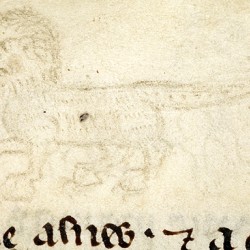 e asnes · ⁊ a